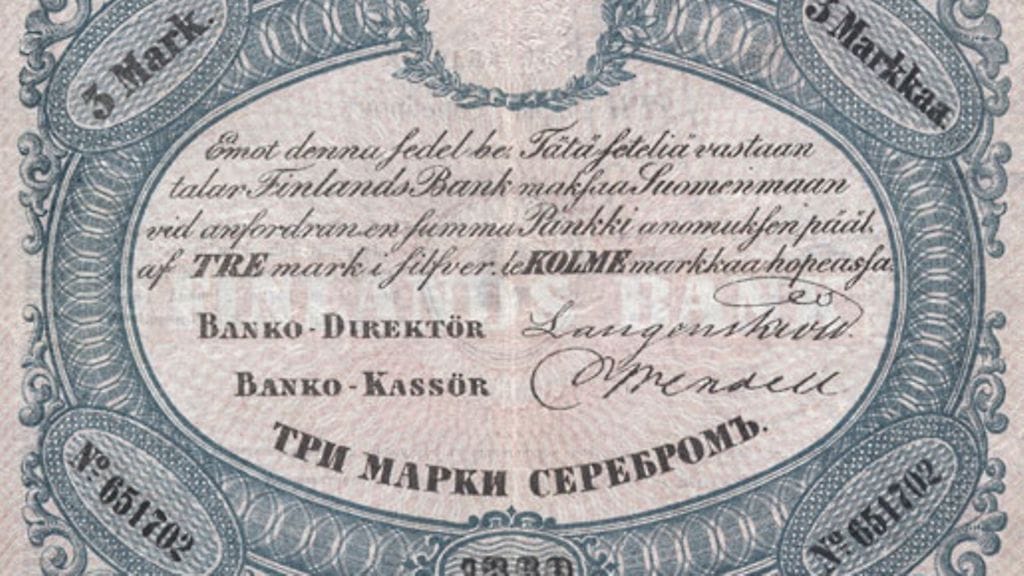 3 Mark.
3 Markkaa
Emot denna sedel be. Tätä seteliä vastaan
talar Finlands Bank maksaa Suomenmaan
vid anfordran en summa Pankki anomuksen pääl.
af TRE mark i silfver. le KOLME markkaa hopeassa.
FINLANDS BANK
BANKO-DIREKTÖR
BANKO-KASSÖR
ТРИ МАРКИ СЕРЕБРОМЪ.
No. 651702
No. 651702